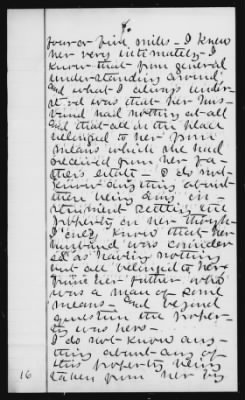 4.
four or five miles - I knew
her very intimately - I
know that from general
understanding around
and what I always under
stood was that her hus-
band had nothing at all
and that all on the place
belonged to her from
means which she had
received from her fa-
ther's estate - I do not
know anything about
there being any in-
strument settling the
property on her though
I only know that her
husband was consider
ed as having nothing
but all belonged to her
from her father who
was a man of some
means - and beyond
question the proper-
ty was hers -
I do not know any-
thing about any of
this property being
taken from her by
16